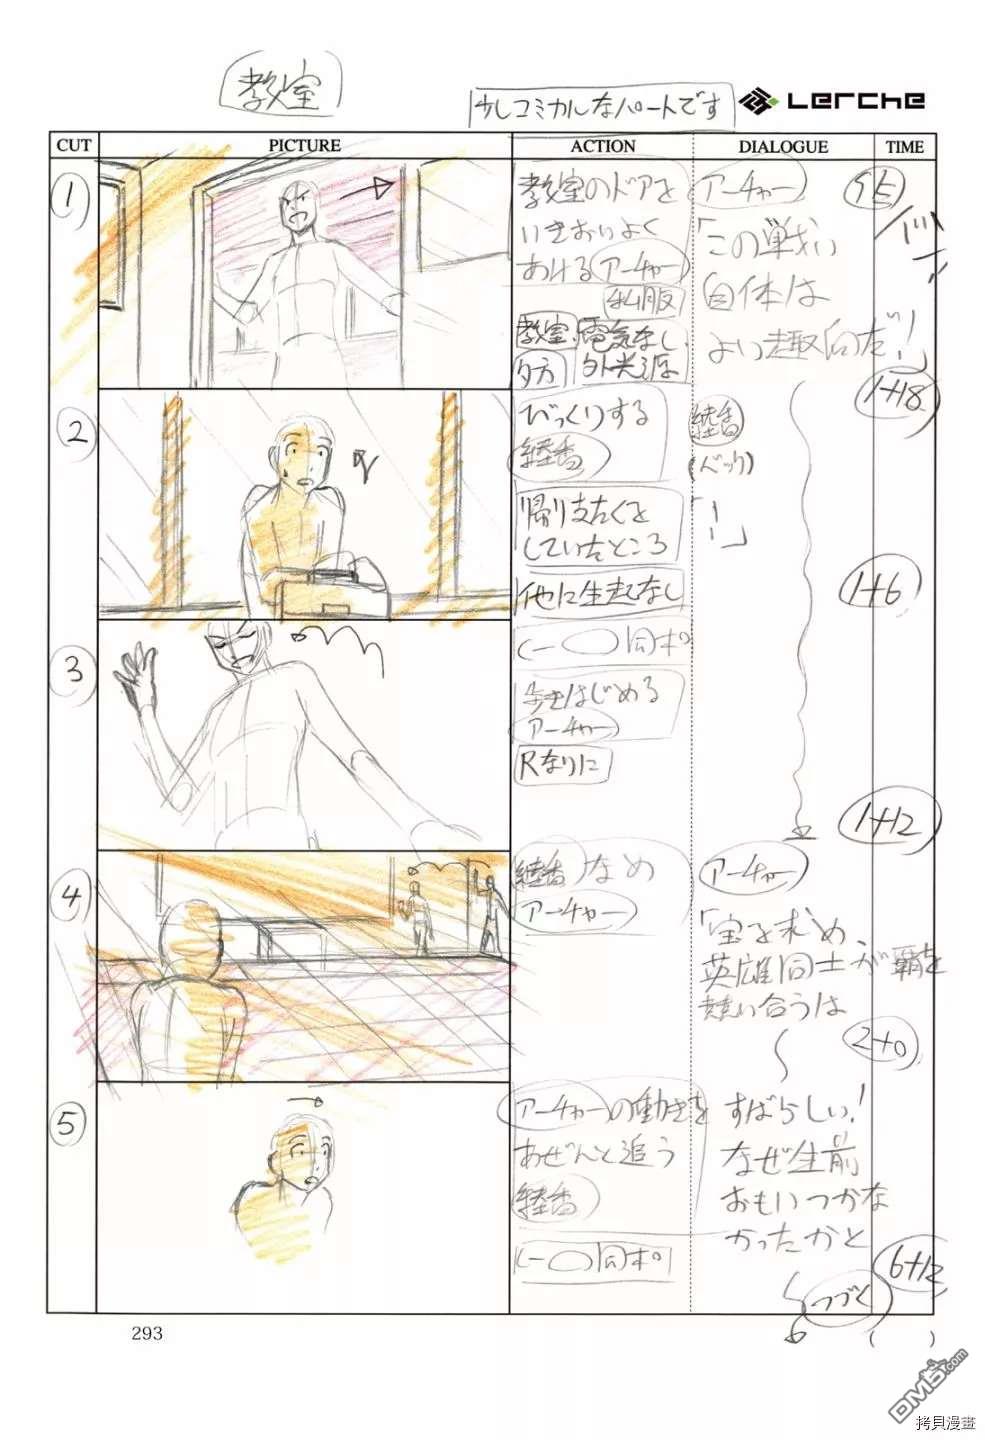 教室
少しコミカルなパートです
Lerche
CUT PICTURE ACTION DIALOGUE TIME
1
教室のドアを
いきおいよく
あける アーチャー
私服
教室 電気なし、
夕方 外光源
アーチャー
「この戦い
自体は
よい趣向だ!」
1+18
2
びっくりする
綾香
帰り支たくを
していたところ
他に生徒なし
綾香
「!」
1+6
3
同ポ
歩きはじめる
アーチャー
Rなりに
1+12
4
綾香 なめ
アーチャー
アーチャー
「宝を求め、
英雄同士が覇を
競い合うは
2+0
5
アーチャーの動きを
あぜんと追う
綾香
同ポ
すばらしい!
なぜ生前
おもいつかな
かったかと
つづく
6+12
( )
293
DM5.com
拷貝漫畫